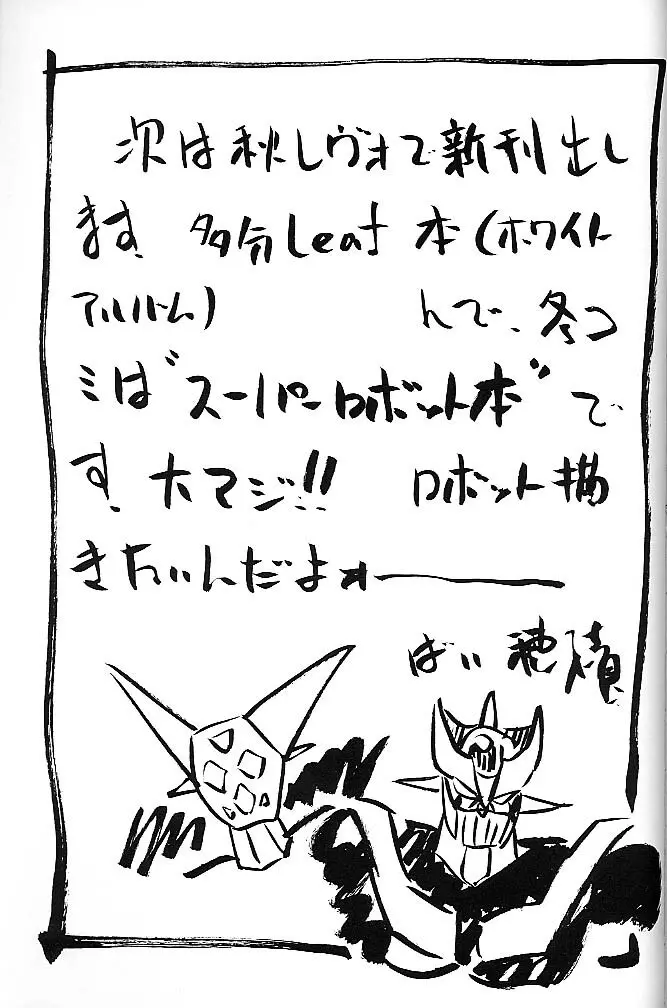 次は秋レヴォで新刊出し
ます。多分Leaf本(ホワイト
アルバム) んで、冬コ
ミは"スーパーロボット本"で
す。大マジ!! ロボット描
きたいんだよォ――
ばい 穂積